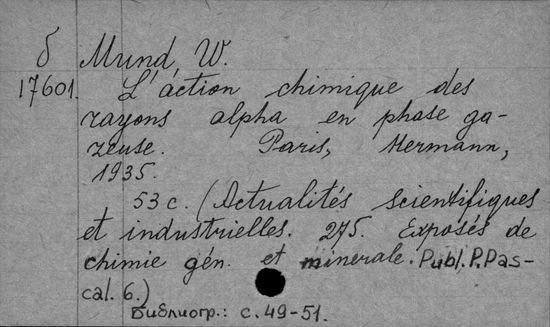 б Mund, W.
17601. L'action chimique des
rayons alpha en phase ga-
zeuse. Paris, Hermann,
1935.
53 c. (Actualités scientifiques
et industrielles. 275. Exposés de
chimie gén. et minerale. Publ. P. Pas-
cal. 6.)
Библиогр.: с. 49-51.